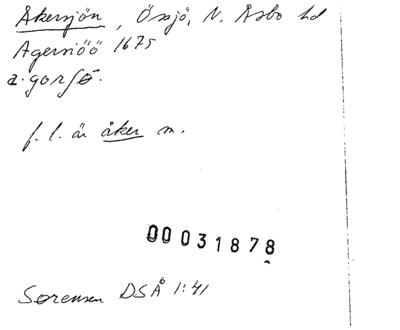 Åkersjön, Össjö, N. Åsbo hd
Agersiöö 1675
a·gorsö.
f. l. är åker m.
00031878
Sørensen DSÅ 1:41